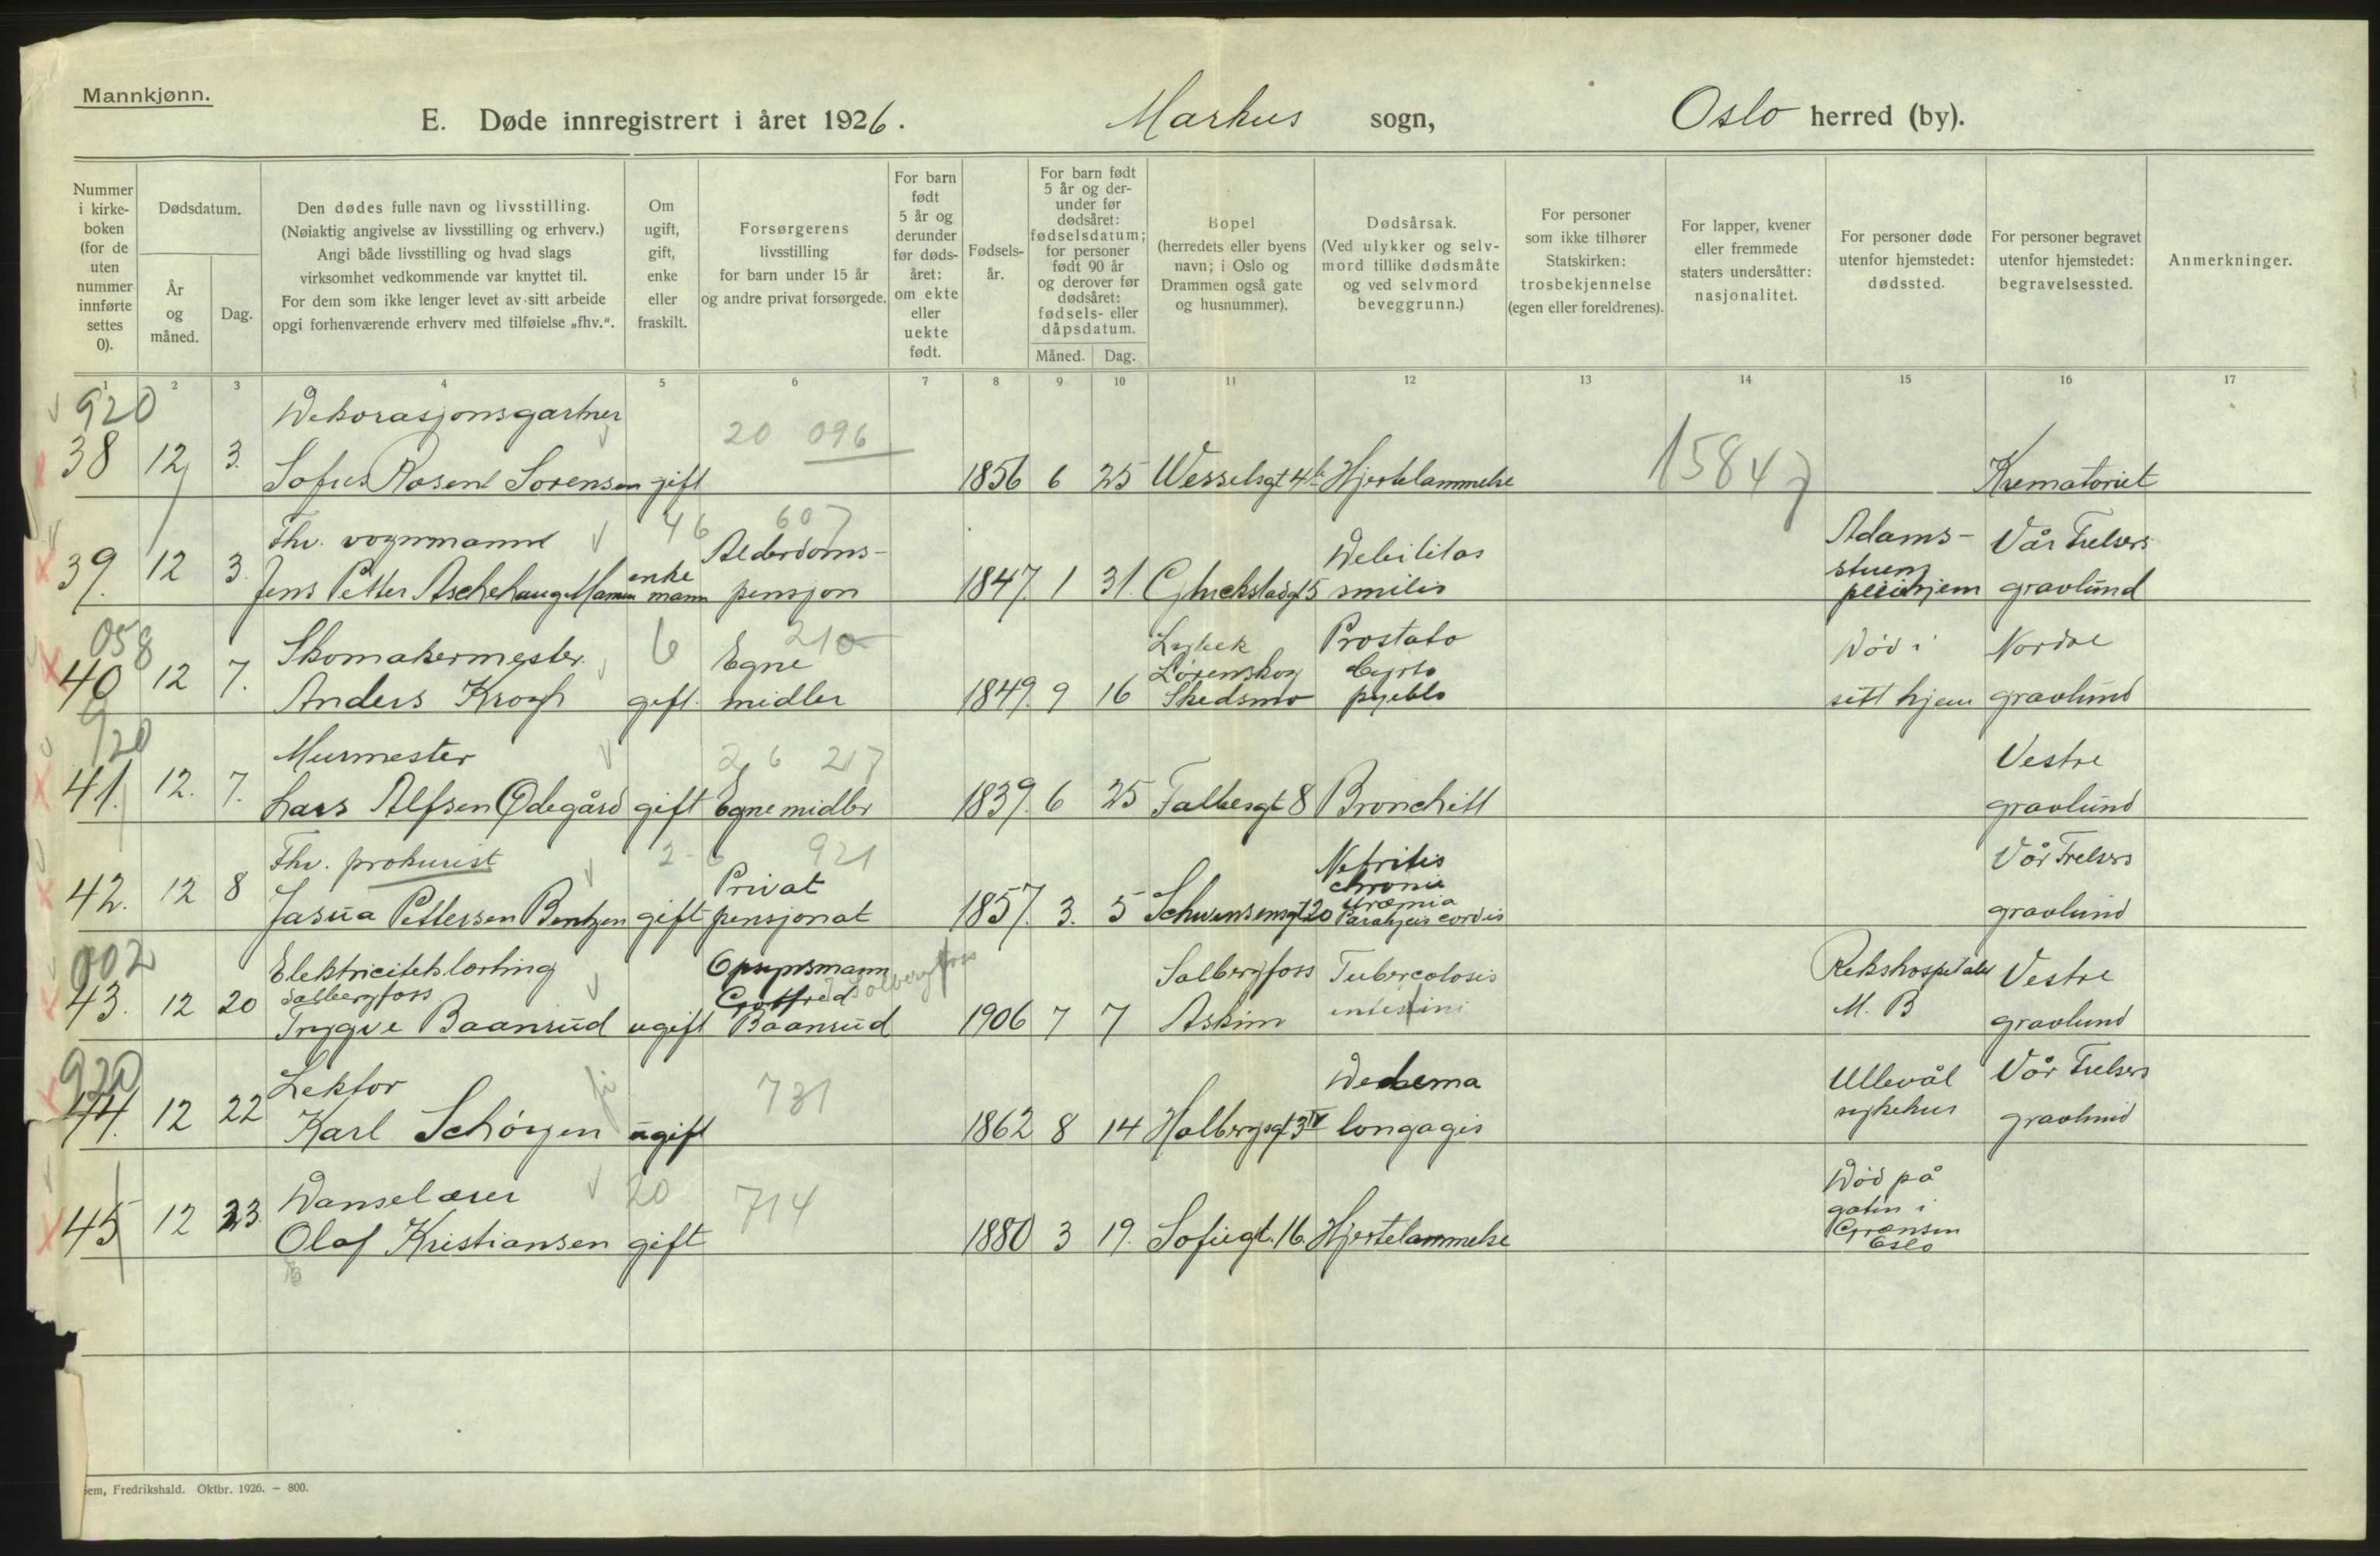 Mannkjønn.
E. Døde innregistrert i året 1926. Markus sogn, Oslo herred (by).
Nummer i kirke- boken (for de uten nummer innførte settes 0).
Dødsdatum.
År og måned.
Dag.
Den dødes fulle navn og livsstilling.
(Nøiaktig angivelse av livsstilling og erhverv.)
Angi både livsstilling og hvad slags
virksomhet vedkommende var knyttet til.
For dem som ikke lenger levet av sitt arbeide
opgi forhenværende erhverv med tilføielse „fhv.".
Om ugift, gift, enke eller fraskilt.
Forsørgerens
livsstilling
for barn under 15 år
og andre privat forsørgede.
For barn født 5 år og derunder før døds- året: om ekte eller uekte født.
Fødsels- år.
For barn født 5 år og der- under før dødsåret: fødselsdatum; for personer født 90 år og derover før dødsåret: fødsels- eller dåpsdatum.
Måned. Dag.
Bopel
(herredets eller byens
navn; i Oslo og
Drammen også gate
og husnummer).
Dødsårsak.
(Ved ulykker og selv-
mord tillike dødsmåte
og ved selvmord
beveggrunn.)
For personer
som ikke tilhører
Statskirken:
trosbekjennelse
(egen eller foreldrenes).
For lapper, kvener
eller fremmede
staters undersåtter:
nasjonalitet.
For personer døde
utenfor hjemstedet:
dødssted.
For personer begravet
utenfor hjemstedet:
begravelsessted.
Anmerkninger.
1 2 3 4 5 6 7 8 9 10 11 12 13 14 15 16 17
920 Dekorasjonsgartner 20 096 15847
38 12 3. Sofus Rosenl Sorensen gift 1856 6 25 Wesselsgt 4 Hjertelammelse Krematoriet
Fhv. vognmann 46 607 Alderdoms- Debilitas Adams- Vår Frelsers
39. 12 3. Jens Petter Aschehaug Hamm enke mann pensjon 1847. 1 31. Gluckstadgt 5 smilis stuen pleiehjem gravlund
058 Skomakermester 6 210 Egne Lørenskog Prostata Død i Nordre
40 12 7. Anders Krogh gift. midler 1849. 9 16 Skedsmo sitt hjem gravlund
920 Murmester 26 217 Vestre
41. 12. 7. Lars Alfsen Ødegård gift Egne midler 1839. 6 25 Falbesgt 8 Bronchitt gravlund
Fhv. prokurist 2-6 921 Privat Nefritis chronic Vår Frelsers
42. 12 8 Jasua Pettersen Bentzen gift pensjonat 1857. 3. 5 Schwensensgt 20 Uræmia Paralysis cordis gravlund
002 Elektricitetslærling Opsynsmann Solbergfoss Solbergfoss Tubercolosis Rikshospitalet Vestre
Solbergfoss Gotfred
43. 12 20 Trygve Baanrud ugift Baanrud 1906 7 7 Askim intestini M. B gravlund
920 Lektor 731 Ullevål Vår Frelsers
44. 12 22 Karl Schöyen ugift 1862 8 14 Holbergsgt 3 IV longagis sykehus gravlund
Danselærer 20 714 Død på
gaten i
45 12 23. Olaf Kristiansen gift 1880 3 19. Sofiegt. 16. Hjertelammelse Grænsen
Oslo
Fredrikshald. Oktbr. 1926. – 800.